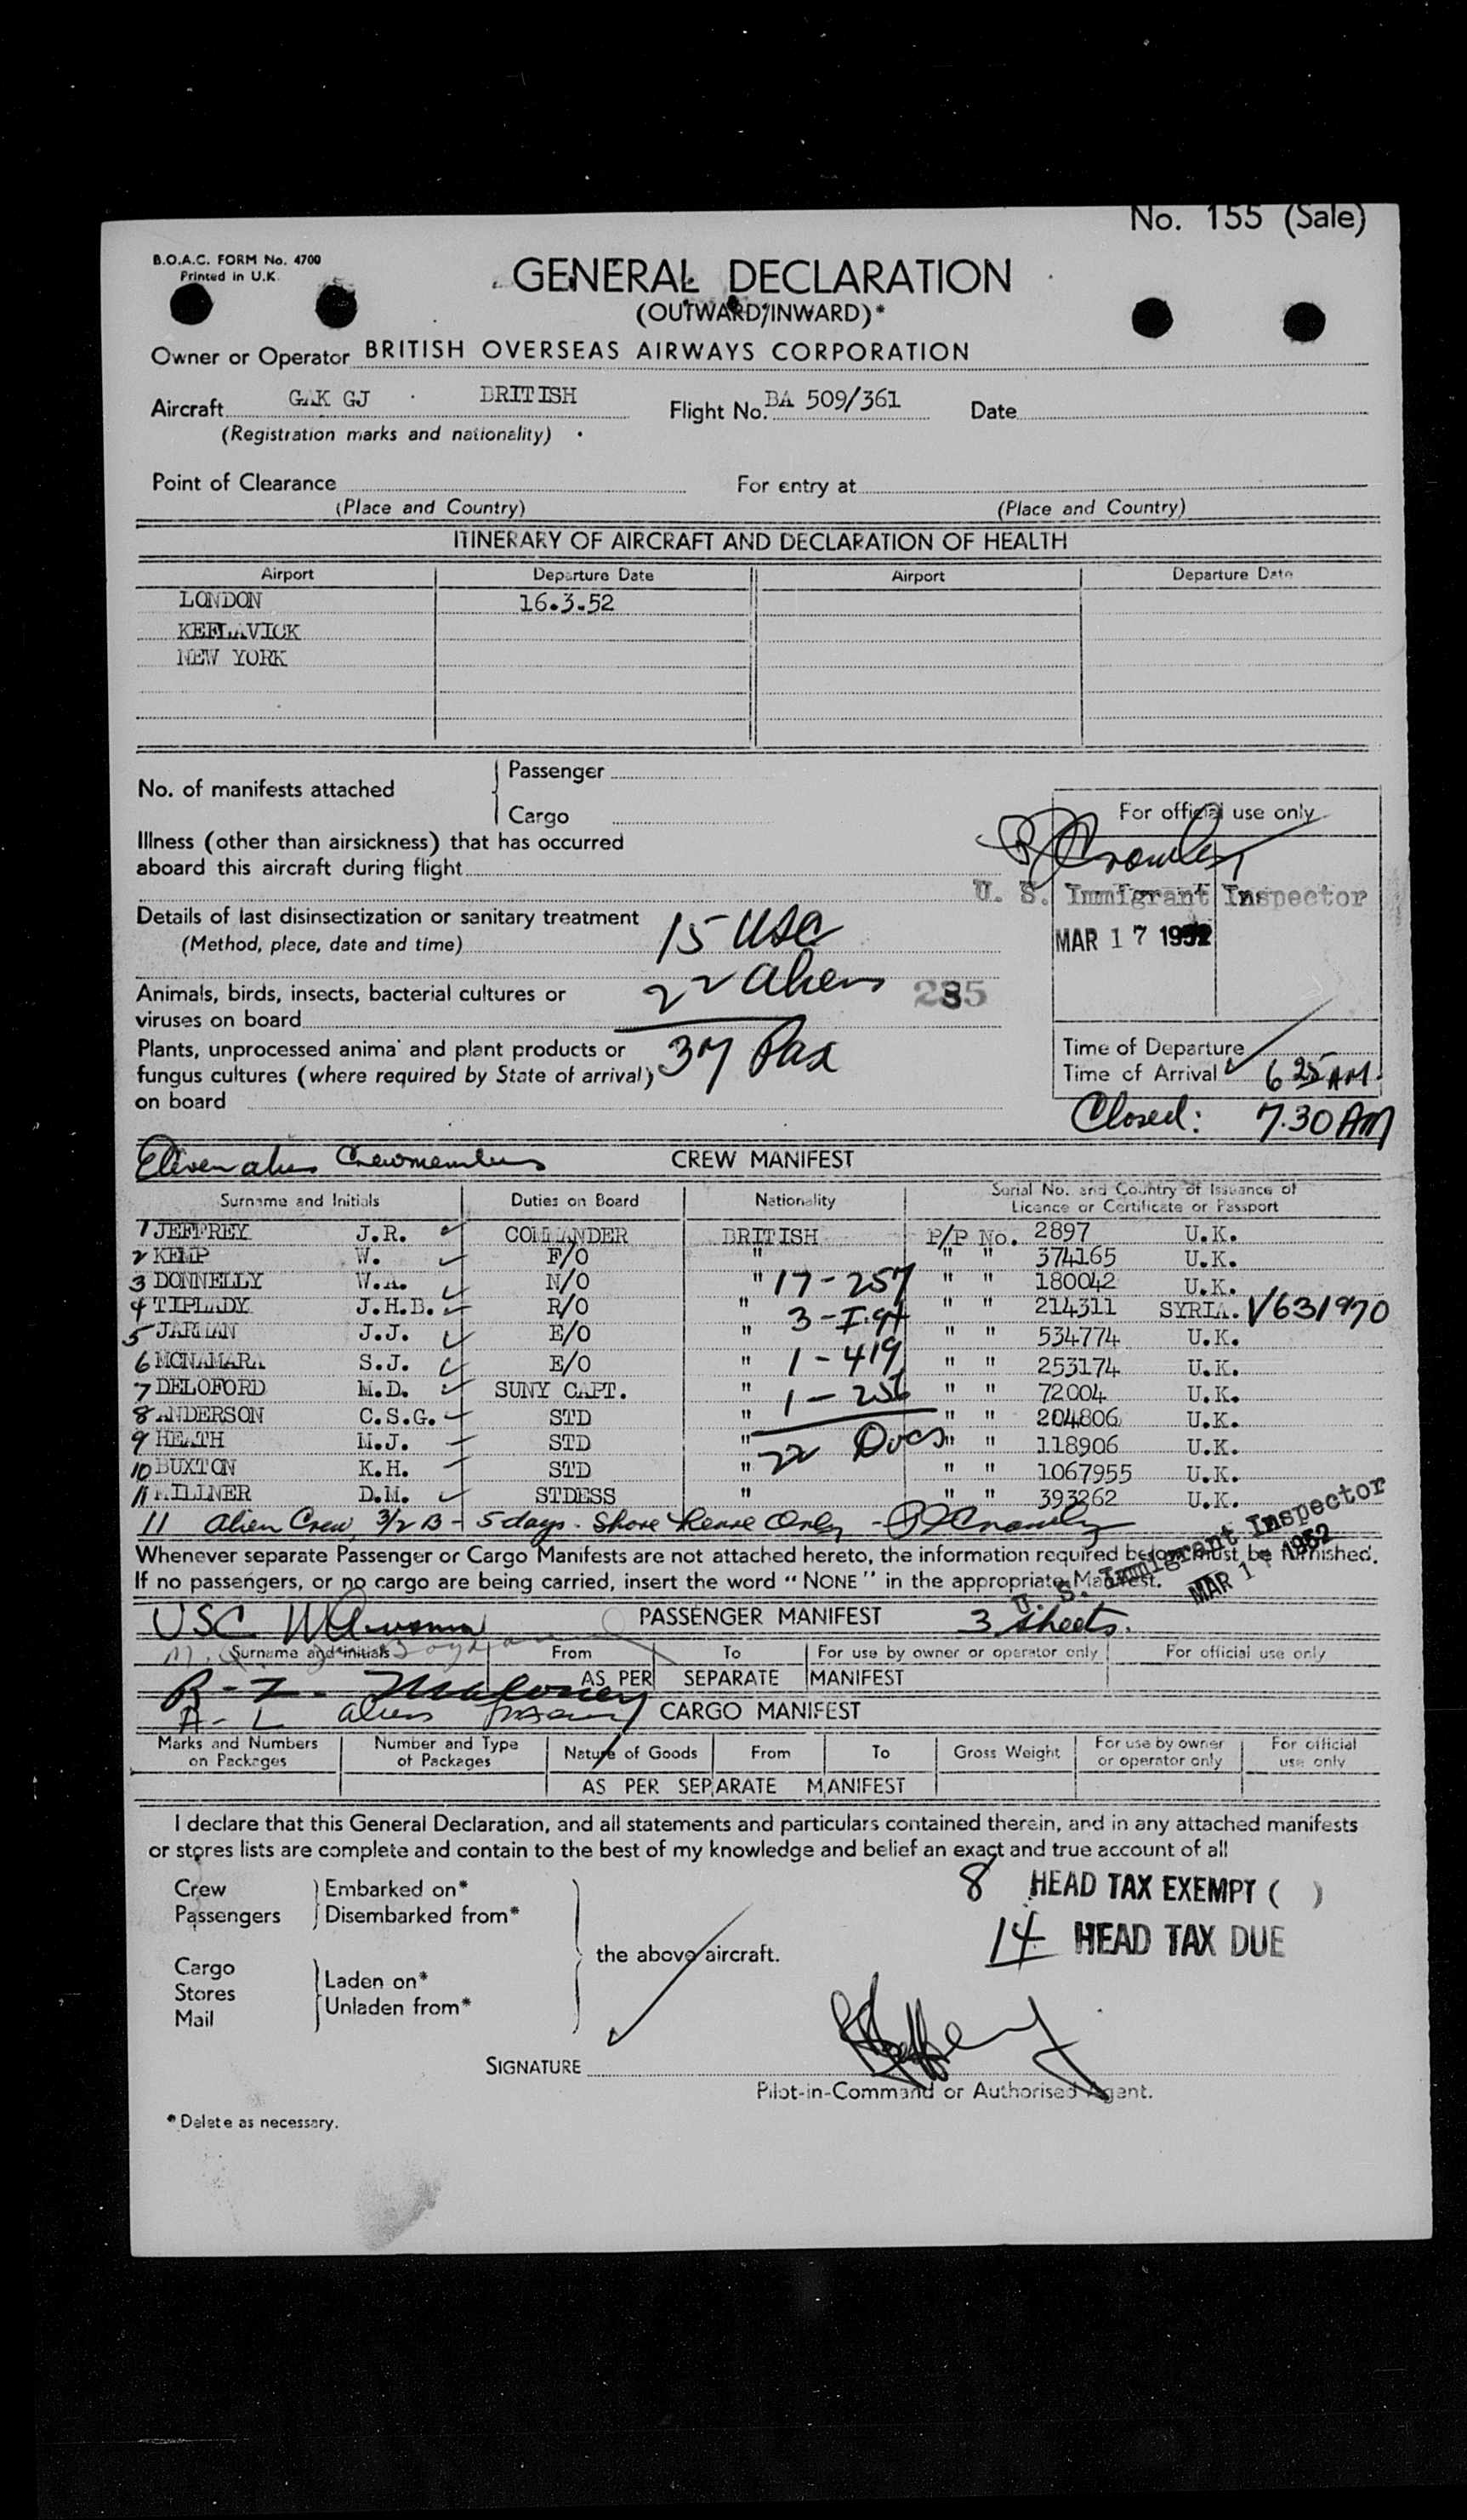 No. 155 (Sale)
B.O.A.C. FORM No. 4700
Printed in U.K.
GENERAL DECLARATION
(OUTWARD/INWARD)*
Owner or Operator BRITISH OVERSEAS AIRWAYS CORPORATION
Aircraft GAK GJ BRITISH Flight No. BA 509/361 Date
(Registration marks and nationality)
Point of Clearance For entry at
(Place and Country) (Place and Country)
ITINERARY OF AIRCRAFT AND DECLARATION OF HEALTH
Airport Departure Date Airport Departure Date
LONDON 16.3.52
KEFLAVICK
NEW YORK
No. of manifests attached
Passenger
Cargo
For official use only
Illness (other than airsickness) that has occurred
aboard this aircraft during flight
U. S. Immigrant Inspector
Details of last disinsectization or sanitary treatment 15 USC
(Method, place, date and time)
MAR 17 1952
Animals, birds, insects, bacterial cultures or 22 Aliens 235
viruses on board
Plants, unprocessed animal and plant products or 37 Pax
fungus cultures (where required by State of arrival)
on board
Time of Departure
Time of Arrival 6 25 AM.
Closed: 7.30 AM
Eleven alien Crewmembers CREW MANIFEST
Surname and Initials Duties on Board Nationality Serial No. and Country of Issuance of
Licence or Certificate or Passport
1 JEFFREY J.R. COMMANDER BRITISH P/P No. 2897 U.K.
2 KEMP W. F/O " " " 374165 U.K.
3 DONNELLY W.A. N/O " 17-257 " " 180042 U.K.
4 TIPLADY J.H.B. R/O " " " 214311 SYRIA. V631970
5 JARMAN J.J. E/O " " " 534774 U.K.
6 MCNAMARA S.J. E/O " 1-419 " " 253174 U.K.
7 DELOFORD M.D. SUNY CAPT. " 1-256 " " 72004 U.K.
8 ANDERSON C.S.G. STD " " " 204806 U.K.
9 HEATH M.J. STD " 22 Docs " " 118906 U.K.
10 BUXTON K.H. STD " " " 1067955 U.K.
11 MILLNER D.M. STDESS " " " 393262 U.K.
11 Alien Crew 3/2 B - 5 days. Shore Leave Only -
U. S. Immigrant Inspector
MAR 17 1952
Whenever separate Passenger or Cargo Manifests are not attached hereto, the information required below must be furnished.
If no passengers, or no cargo are being carried, insert the word "NONE" in the appropriate Manifest.
USC PASSENGER MANIFEST 3 sheets.
Surname and Initials From To For use by owner or operator only For official use only
AS PER SEPARATE MANIFEST
A-L aliens CARGO MANIFEST
Marks and Numbers on Packages Number and Type of Packages Nature of Goods From To Gross Weight For use by owner or operator only For official use only
AS PER SEPARATE MANIFEST
I declare that this General Declaration, and all statements and particulars contained therein, and in any attached manifests
or stores lists are complete and contain to the best of my knowledge and belief an exact and true account of all
Crew Embarked on*
Passengers Disembarked from*
8 HEAD TAX EXEMPT ( )
14 HEAD TAX DUE
the above aircraft.
Cargo
Stores
Mail
Laden on*
Unladen from*
SIGNATURE
Pilot-in-Command or Authorised Agent.
* Delete as necessary.